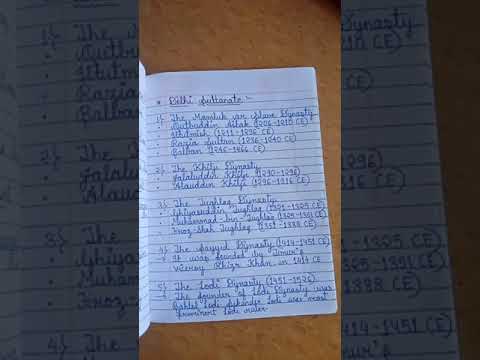 * Delhi Sultanate :-
1) The Mamluk or Slave Dynasty
• Qutbuddin Aibak (1206-1210 CE)
• Iltutmish (1211-1236 CE)
• Razia Sultan (1236-1240 CE)
• Balban
2) The Khilji Dynasty
• Jalaluddin Khilji (1290-1296)
• Alauddin Khilji (1296-1316 CE)
3) The Tughlaq Dynasty
• Ghiyasuddin Tughlaq (1321-1325 CE)
• Muhammad-bin-Tughlaq (1325-1351 CE)
• Firoz-Shah Tughlaq (1351-1388 CE)
4) The Sayyid Dynasty (1414-1451 CE)
• It was founded by Timur's
viceroy Khizr Khan in 1414 CE
5) The Lodi Dynasty (1451-1526)
• The founder of Lodi Dynasty was
Bahlol Lodi Sikandar Lodi was most
prominent Lodi ruler